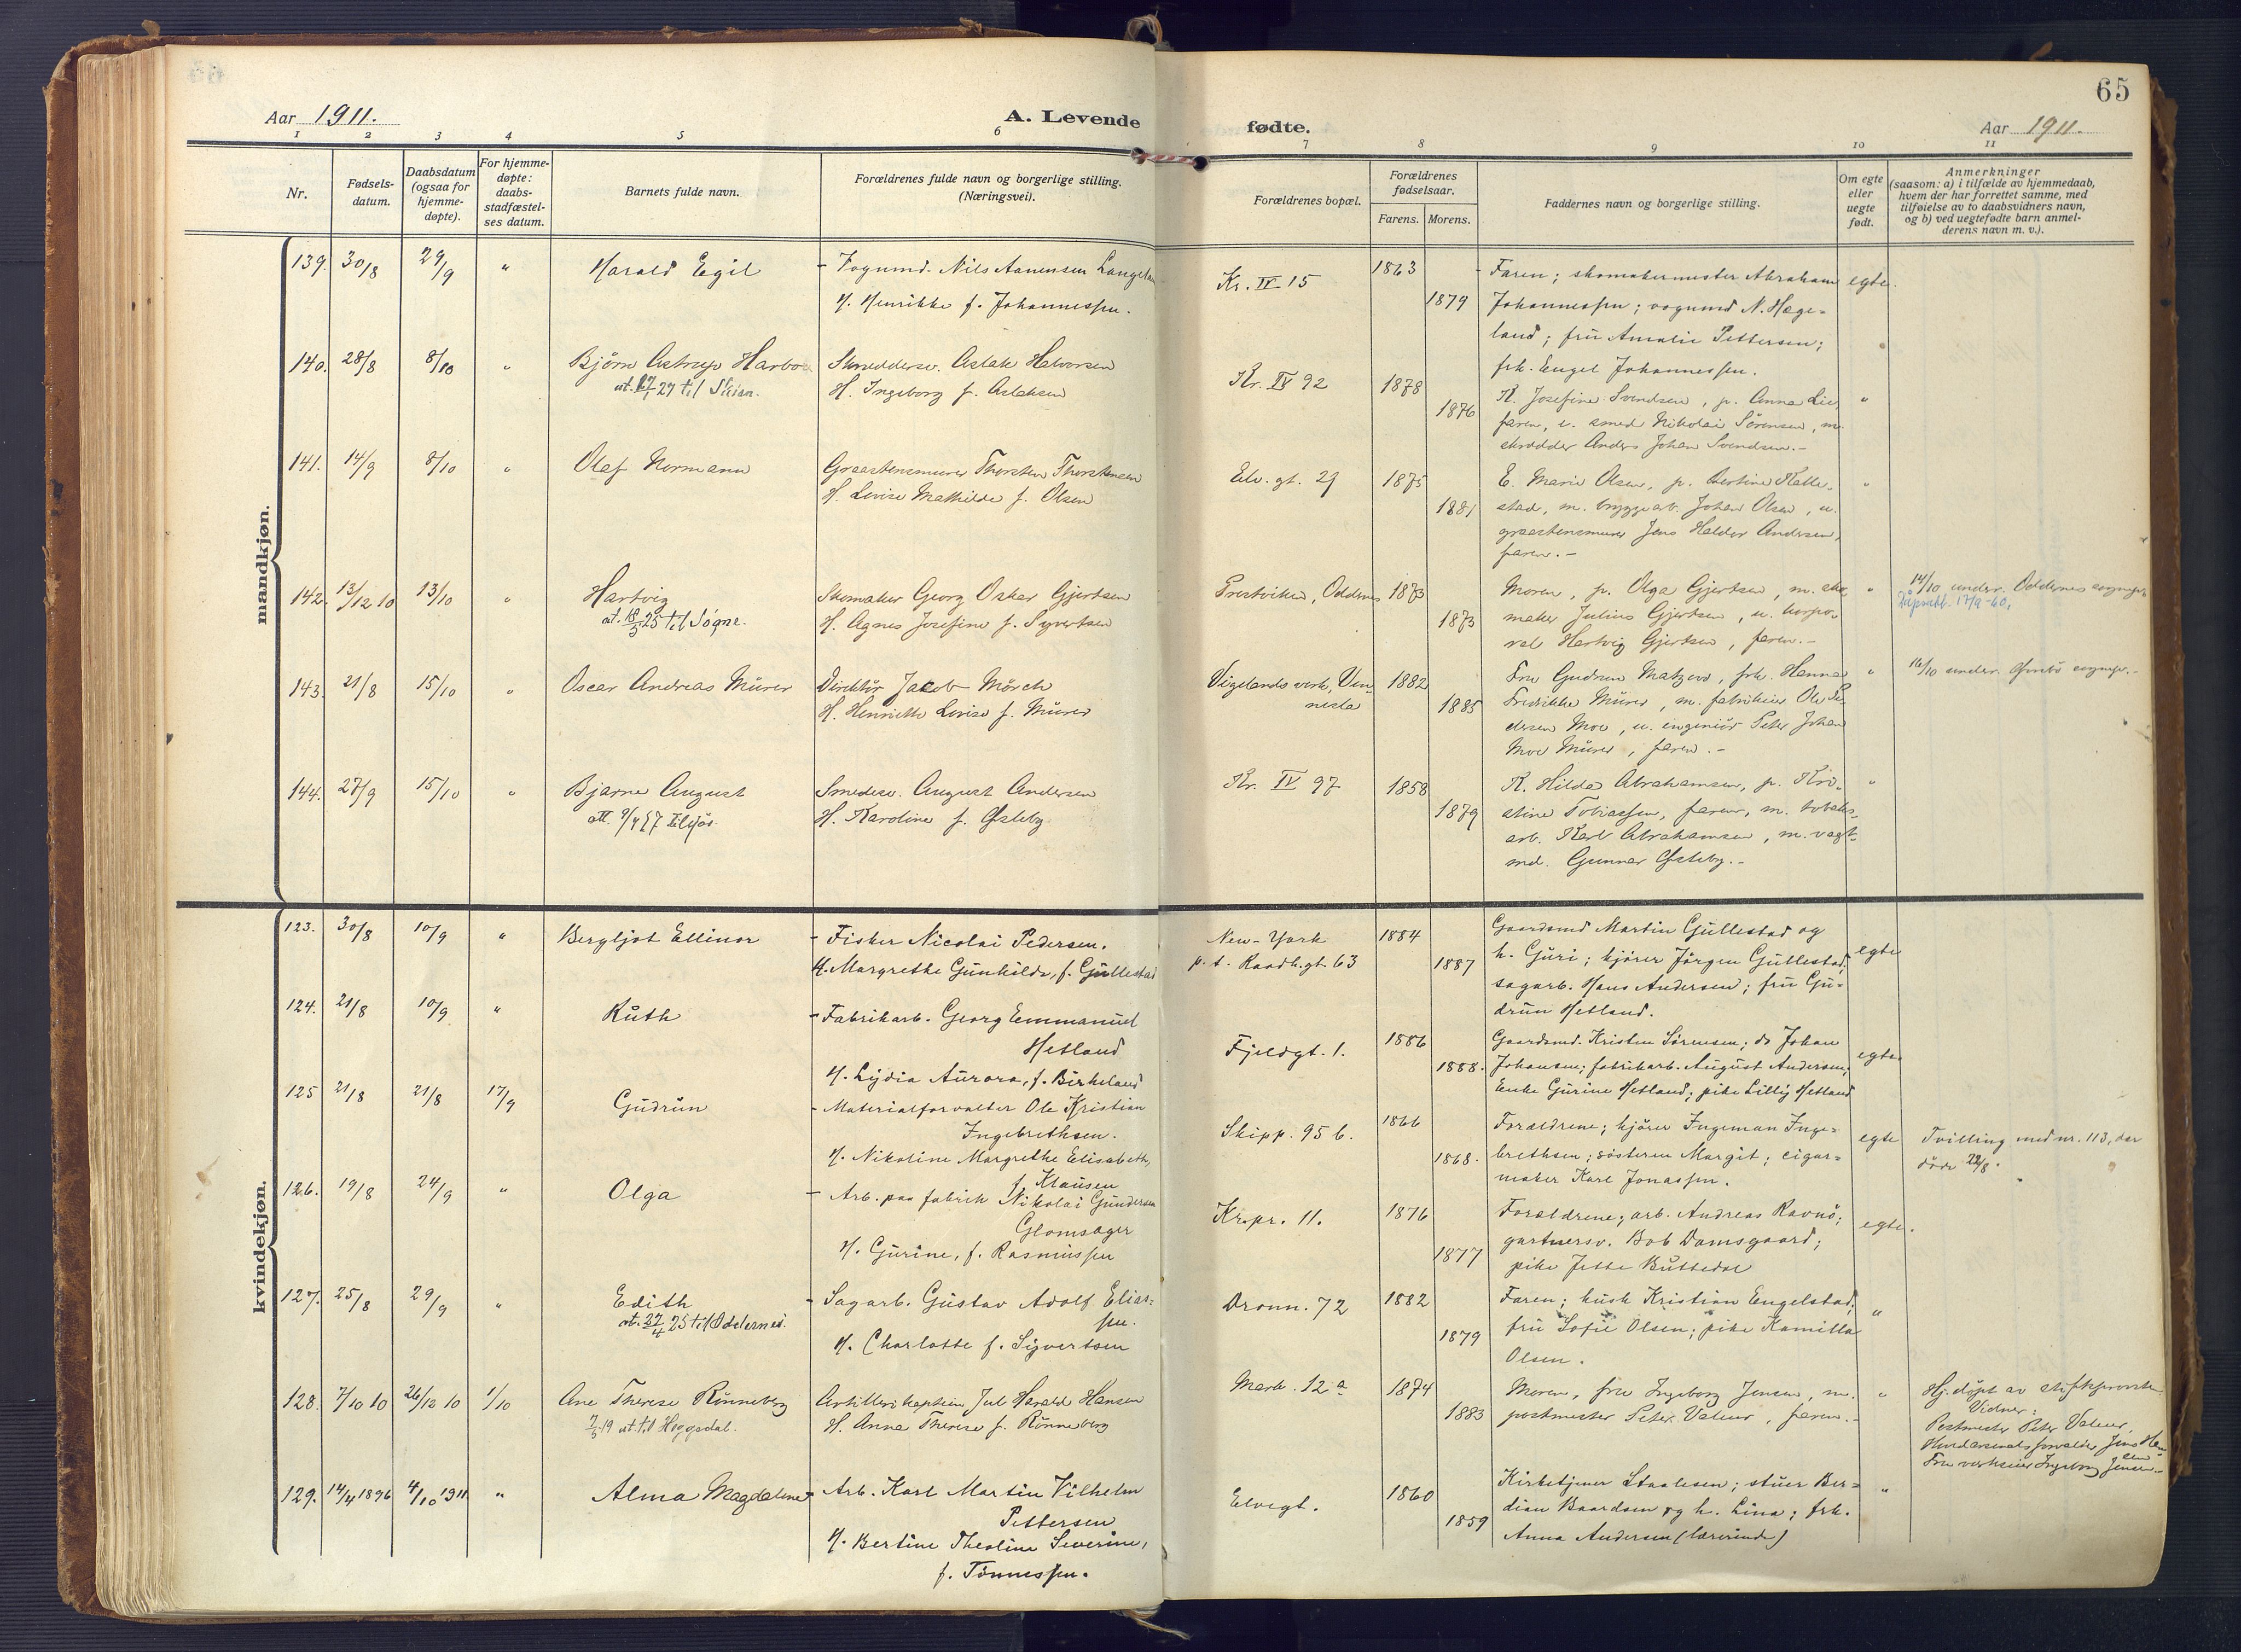 65
Aar 1911.
A. Levende
fødte.
Aar 1911.
1 2 3 4 5 6 7 8 9 10 11
Nr.
Fødsels-
datum.
Daabsdatum
(ogsaa for
hjemme-
døpte).
For hjemme-
døpte:
daabs-
stadfæstel-
ses datum.
Barnets fulde navn.
Forældrenes fulde navn og borgerlige stilling.
(Næringsvei).
Forældrenes bopæl.
Forældrenes
fødselsaar.
Farens. Morens.
Faddernes navn og borgerlige stilling.
Om egte
eller
uegte
født.
Anmerkninger
(saasom: a) i tilfælde av hjemmedaab,
hvem der har forrettet samme, med
tilføielse av to daabsvidners navn,
og b) ved uegtefødte barn anmel-
derens navn m. v.).
mandkjøn.
139. 30/8 29/9 " Harald Egil
- Vognmd. Nils Aanensen
H. Henrikke f. Johannessen.
Kr. IV 15 1863 1879
- Faren; skomakermester Abraham
Johannessen; vognmd N. Hæge-
land; frü Amalie Pettersen;
frk. Engel Johannessen.
egte.
140. 28/8 8/10 " Bjørn Astrup
ut. 29 til Skien.
Skræddersv. Aslak Halvorsen
H. Ingeborg f. Aslaksen
Kr. IV 92 1878 1876
K. Josefine Svendsen, p. Anna Lie,
faren, u. smed Nikolai Sørensen, m.
skrædder Anders Johan Svendsen.-
"
141. 14/9 8/10 " Olaf Normann
Graastensmurer Thorsten Thorstensen
H. Lovise Mathilde f. Olsen
Elv. gt. 29 1875 1881
E. Marie Olsen, p.
stad, m. bryggearb. Johan Olsen, u.
graastensmurer Jens Haldor Andersen,
faren.-
"
142. 13/12 10 13/10 " Hartvig
ut. 18/5 25 til Søgne.
Skomaker Georg Oskar Gjertsen
H. Agnes Josefine f. Syvertsen
Prestviken, Oddernes 1873 1873
Moren, p. Olga Gjertsen, m. sko-
maker Julius Gjertsen, u. korpo-
ral Hartvig Gjertsen, faren.-
"
14/10 underr. Oddernes sognepr.
Dåpsatt. 17/9-60.
143. 21/8 15/10 " Oscar Andreas Mürer
Direktør Jacob Mörch
H. Henriette Lovise f. Mürer
Vigelands verk, Ven-
nesla
1882 1885
Fru Gudrun, frk. Hanna
Fredrikke Mürer, m. fabrikeier Ole Pe-
dersen Moe, u. ingeniör Peter Johan
Moe Mürer, faren.-
"
16/10 underr. sognepr.-
144. 27/9 15/10 " Bjarne August
att. 57
Smedesv. August Andersen
H. Karoline f. Østeby
Kr. IV 97 1858 1879
K. Hilda Abrahamsen, p. Kri-
stine Tobiassen, faren, m. tobaks-
arb. Karl Abrahamsen, m. vagt-
md. Gunnar Østeby.-
"
kvindekjøn.
123. 30/8 10/9 " Bergljot Ellinor
- Fisker Nicolai Pedersen.
H. Margrethe Günhilde, f. Güllestad
New-York
p. t. Raadh.gt. 63
1884 1887
Gaardsmd Martin Güllestad og
h. Güri; kjører Jörgen Güllestad;
sagarb. Hans Andersen; frü Gü-
drün Hetland.
egte
124. 21/8 10/9 " Rüth
- Fabrikarb. Georg Emmanüel
Hetland
H. Lÿdia Aürora, f. Birkeland
Fjeldgt. 1. 1886 1888.
Gaardsmd. Kristen Sørensen; do Johan
Johansen; fabrikarb. Aügüst Andersen;
Enke Gürine Hetland; pike Lillÿ Hetland
egte
125 21/8 21/8 17/9 Güdrün
- Materialforvalter Ole Kristian
Ingebrethsen.
H. Nikoline Margrethe Elisabeth,
f. Klaüsen
Skipp. 95 b. 1866 1868.
Forældrene; kjører Ingeman Inge-
brethsen; søsteren Margit; cigar-
maker Karl Jonassen.
egte
Tvilling med nr. 113, der
døde 22/8.
126. 19/8 24/9 " Olga
- Arb. paa fabrik Nikolai Gündersen
Glomsager
H. Gürine, f. Rasmüssen
Kr.pr. 11. 1876 1877
Forældrene; arb. Andreas Ravnå;
gartnersv. Bob Damsgaard;
pike Jette
egte.
127. 25/8 29/9 " Edith
ut. 27/4 25 til Oddernes.
- Sagarb. Güstav Adolf Elias-
sen.
H. Charlotte f. Sÿvertsen
Dronn. 72 1882 1879
Faren; Kristian Engelstad;
frü Sofie Olsen; pike Kamilla
Olsen.
"
128. 7/10 10 26/12 10 1/10 Ane Therese Rönneberg
7/5 19 ut. til Heggedal.
Artillerikaptein Jul Harald Hansen
H. Anna Therese f. Rönneberg
Mark. 12 a 1874 1883
Moren, fru Ingeborg Jensen, m.
postmester Peter Valeur, faren.-
"
Hj. døpt av stiftsprovst
Vidner:
Postmester Peter Valeur,
Fru Ingeborg Jensen.-
129. 14/4 1896 4/10 1911 " Alma Magdalene
- Arb. Karl Martin Vilhelm
Pettersen
H. Bertine Theoline Severine,
f. Tönnessen.
Elvegt. 1860 1859
Kirketjener Staalesen; stüer Ber-
dian Baardsen og h. Lina; frk.
Anna Andersen (lærerinde)
"